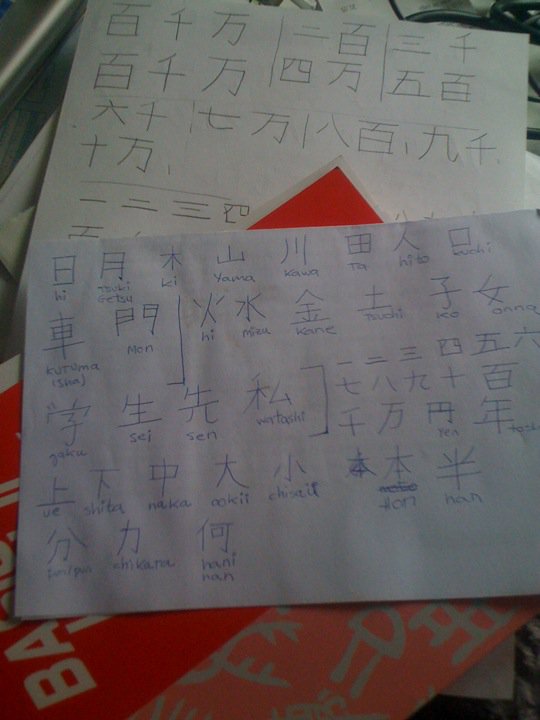 百千万 二百 三千
百千万 四万 五百
六千 七万 八百 九千
十万
一二三四
日 月 木 山 川 田 人 口
hi tsuki ki yama kawa ta hito kuchi
getsu
車 門 火 水 金 土 子 女
kuruma mon hi mizu kane tsuchi ko onna
(sha)
一二三四五六
七八九十百
千万円年
yen
学 生 先 私
gaku sei sen watashi
上 下 中 大 小 本 本 半
ue shita naka ookii chisaii hon han
分 力 何
chikara nani
nan
BA